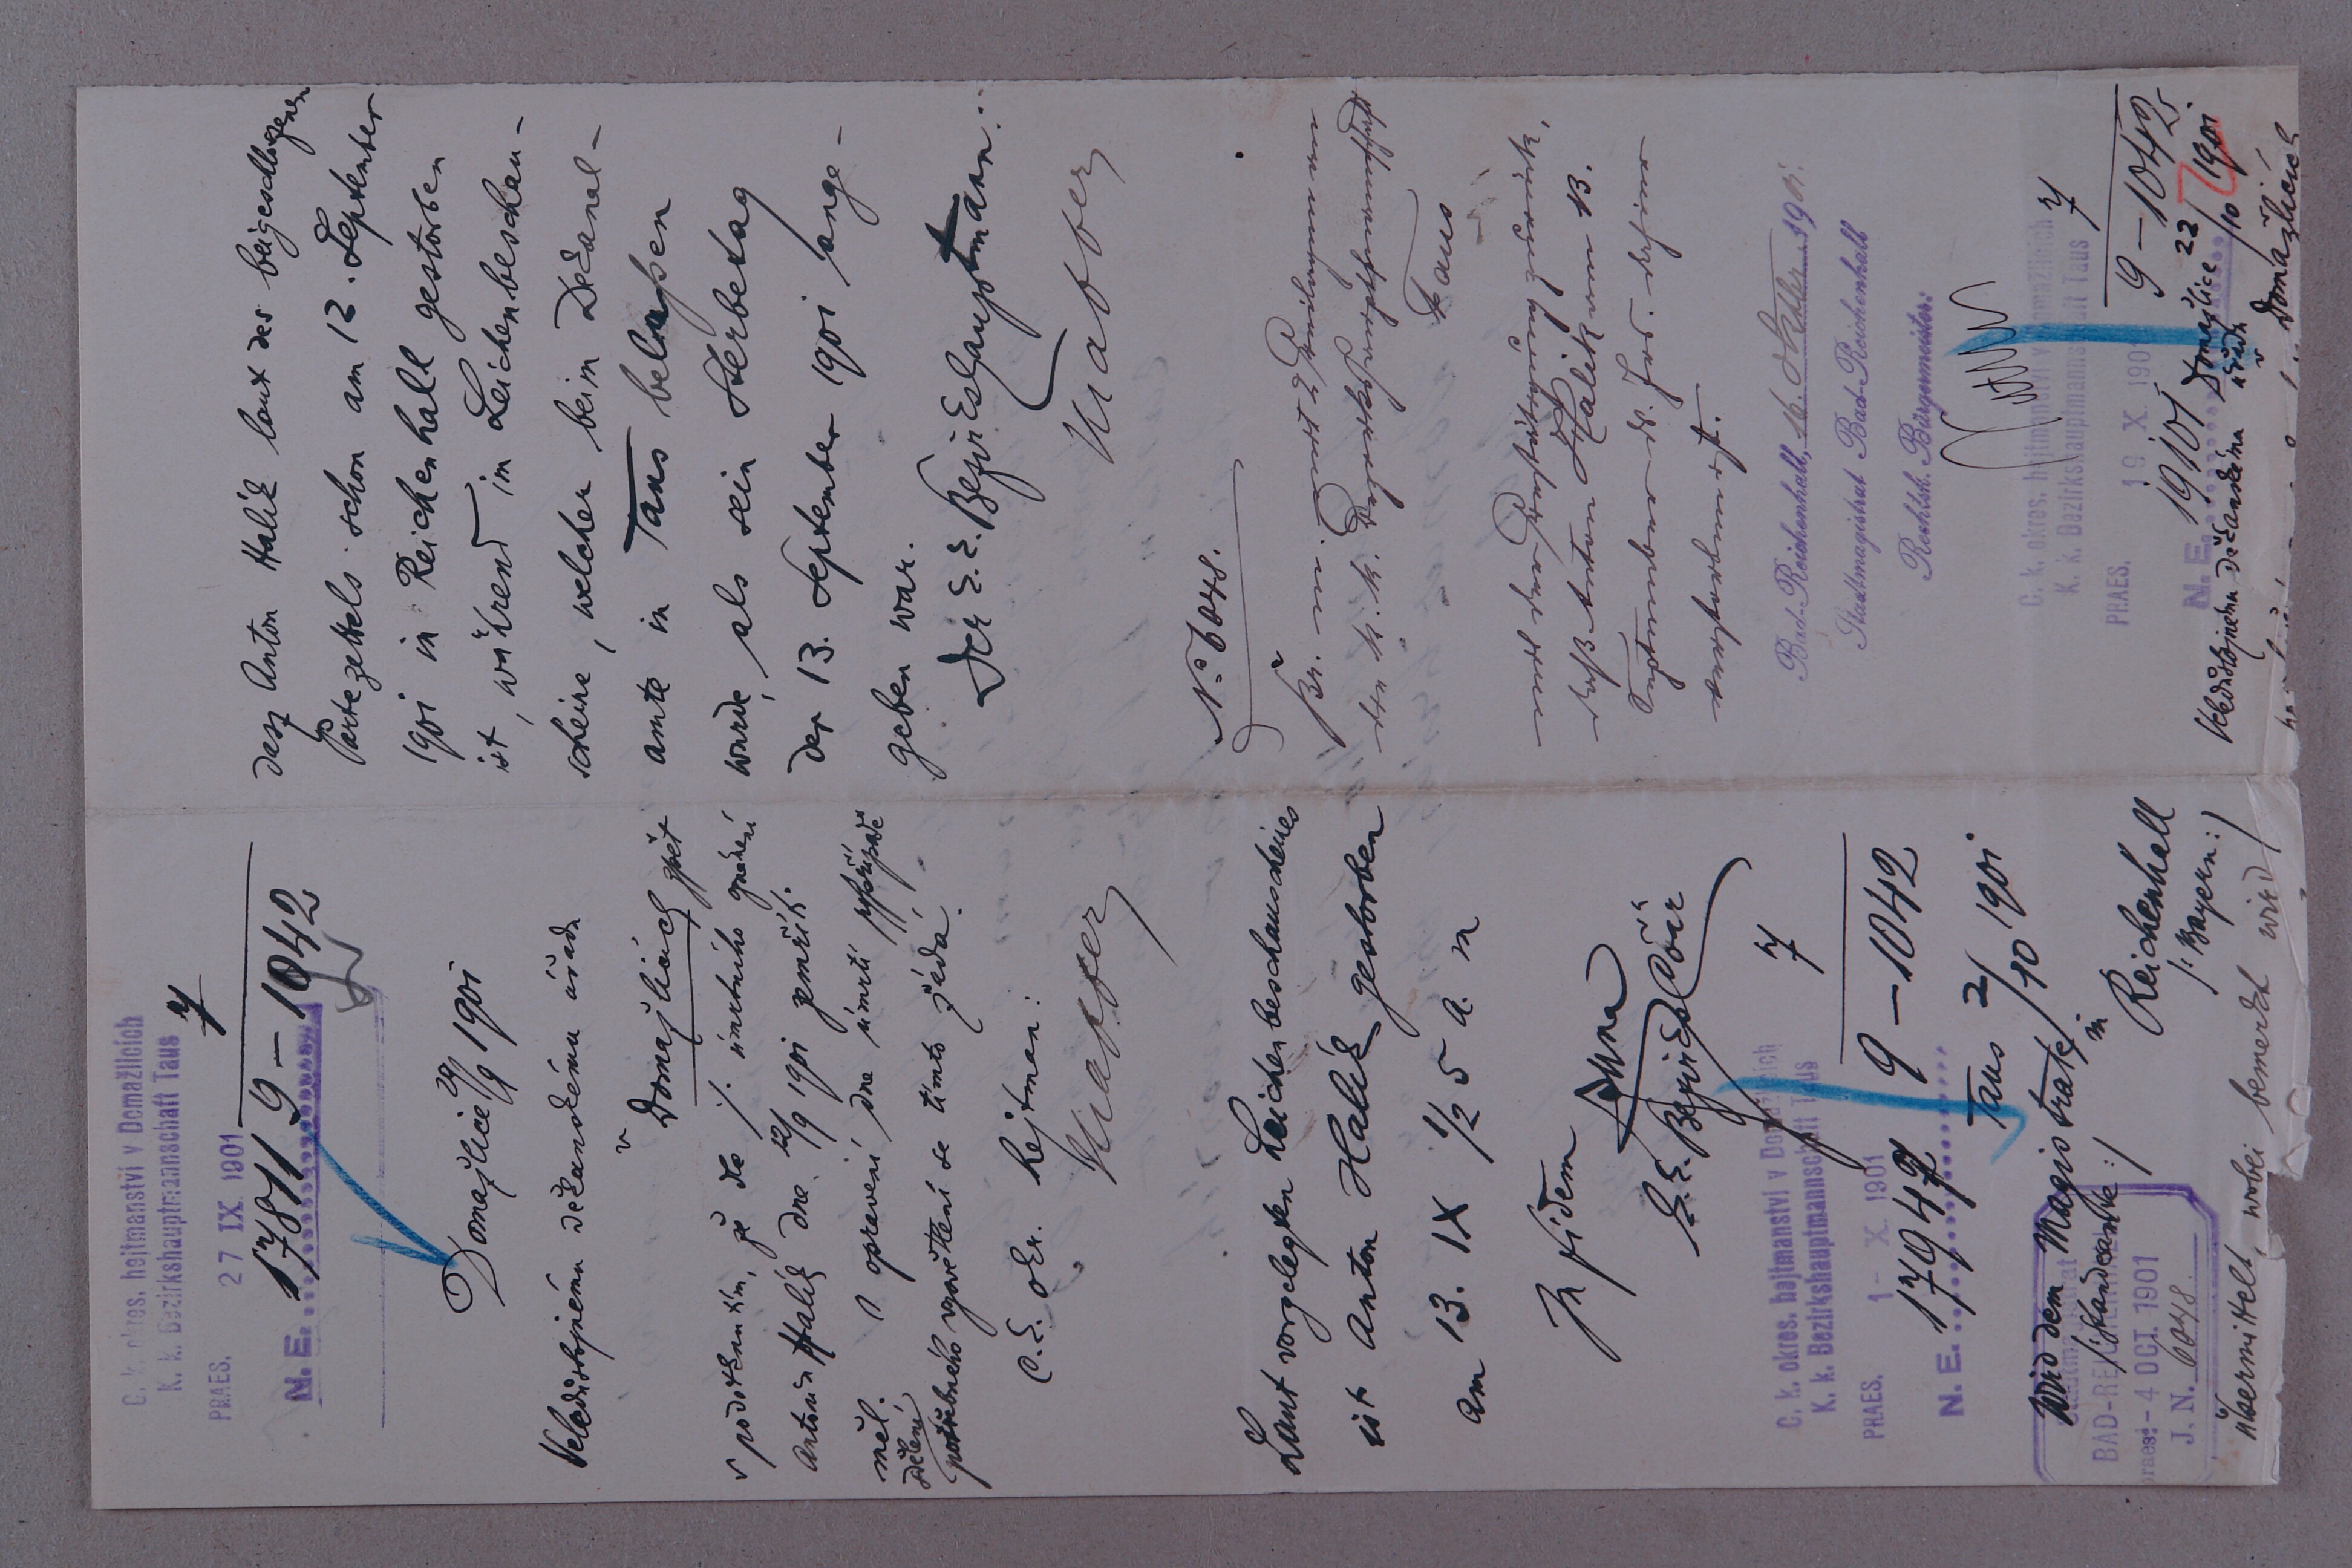 C. k. okres. hejtmanství v Domažlicích
K. k. Bezirkshauptmannschaft Taus
7
PRAES. 27 IX. 1901
N. E. 17811 9–1042
Domažlice 29/9 1901
Veledůstojnému děkanskému úřadu
v
Domažlicích zpět
s podotknutím, že dle ·/. úmrtního oznámení
Antonín Halík dne 12/9 1901 zemřít
měl. O opravení dne úmrtí
sdělení
potřebného vysvětlení se tímto žádá.
C. k. okr. hejtman:
Laut vorgelegten Leichenbeschauscheines
ist Anton Halík gestorben
am 13. IX 1/2 5 a. m
In fidem
k. k. Bezirks
C. k. okres. hejtmanství v Domažlicích
K. k. Bezirkshauptmannschaft Taus
7
PRAES. 1 - X. 1901
N. E. 17947 9–1042
Taus 2/10 1901
Wird dem Magistrate
/: Standesamte :/
in
Reichenhall
/: Bayern :/
Stadtmagistrat
BAD-REICHENHALL
praes: - 4 OCT. 1901
J. N. 6048.
übermittelt, wobei bemerkt wird,
dasz Anton Halík laut des beigeschlossenen
Partezettels schon am 12. September
1901 in Reichenhall gestorben
ist, während im Leichenbeschau-
scheine, welcher beim Dekanal-
amte in Taus belaßen
wurde, als sein Sterbetag
der 13. September 1901 ange-
geben war.
Der k. k. Bezirkshauptmann:
No 6048.
Br. m.
der K. K. Bezirkshauptmannschaft
Taus
mit der Bestätigung zurück,
daß Anton Halik am 13.
September ds. Jrs. dahier
verstorben ist.
Bad-Reichenhall, 16. Oktober 1901.
Stadtmagistrat Bad-Reichenhall
Rechtsk. Bürgermeister:
C. k. okres. hejtmanství v Domažlicích
K. k. Bezirkshauptmannschaft Taus
7
PRAES. 19 X. 1901
N. E. 19101 9–1042
Domažlice 22/10 1901
Veledůstojnému děkanskému úřadu
v Domažlicích